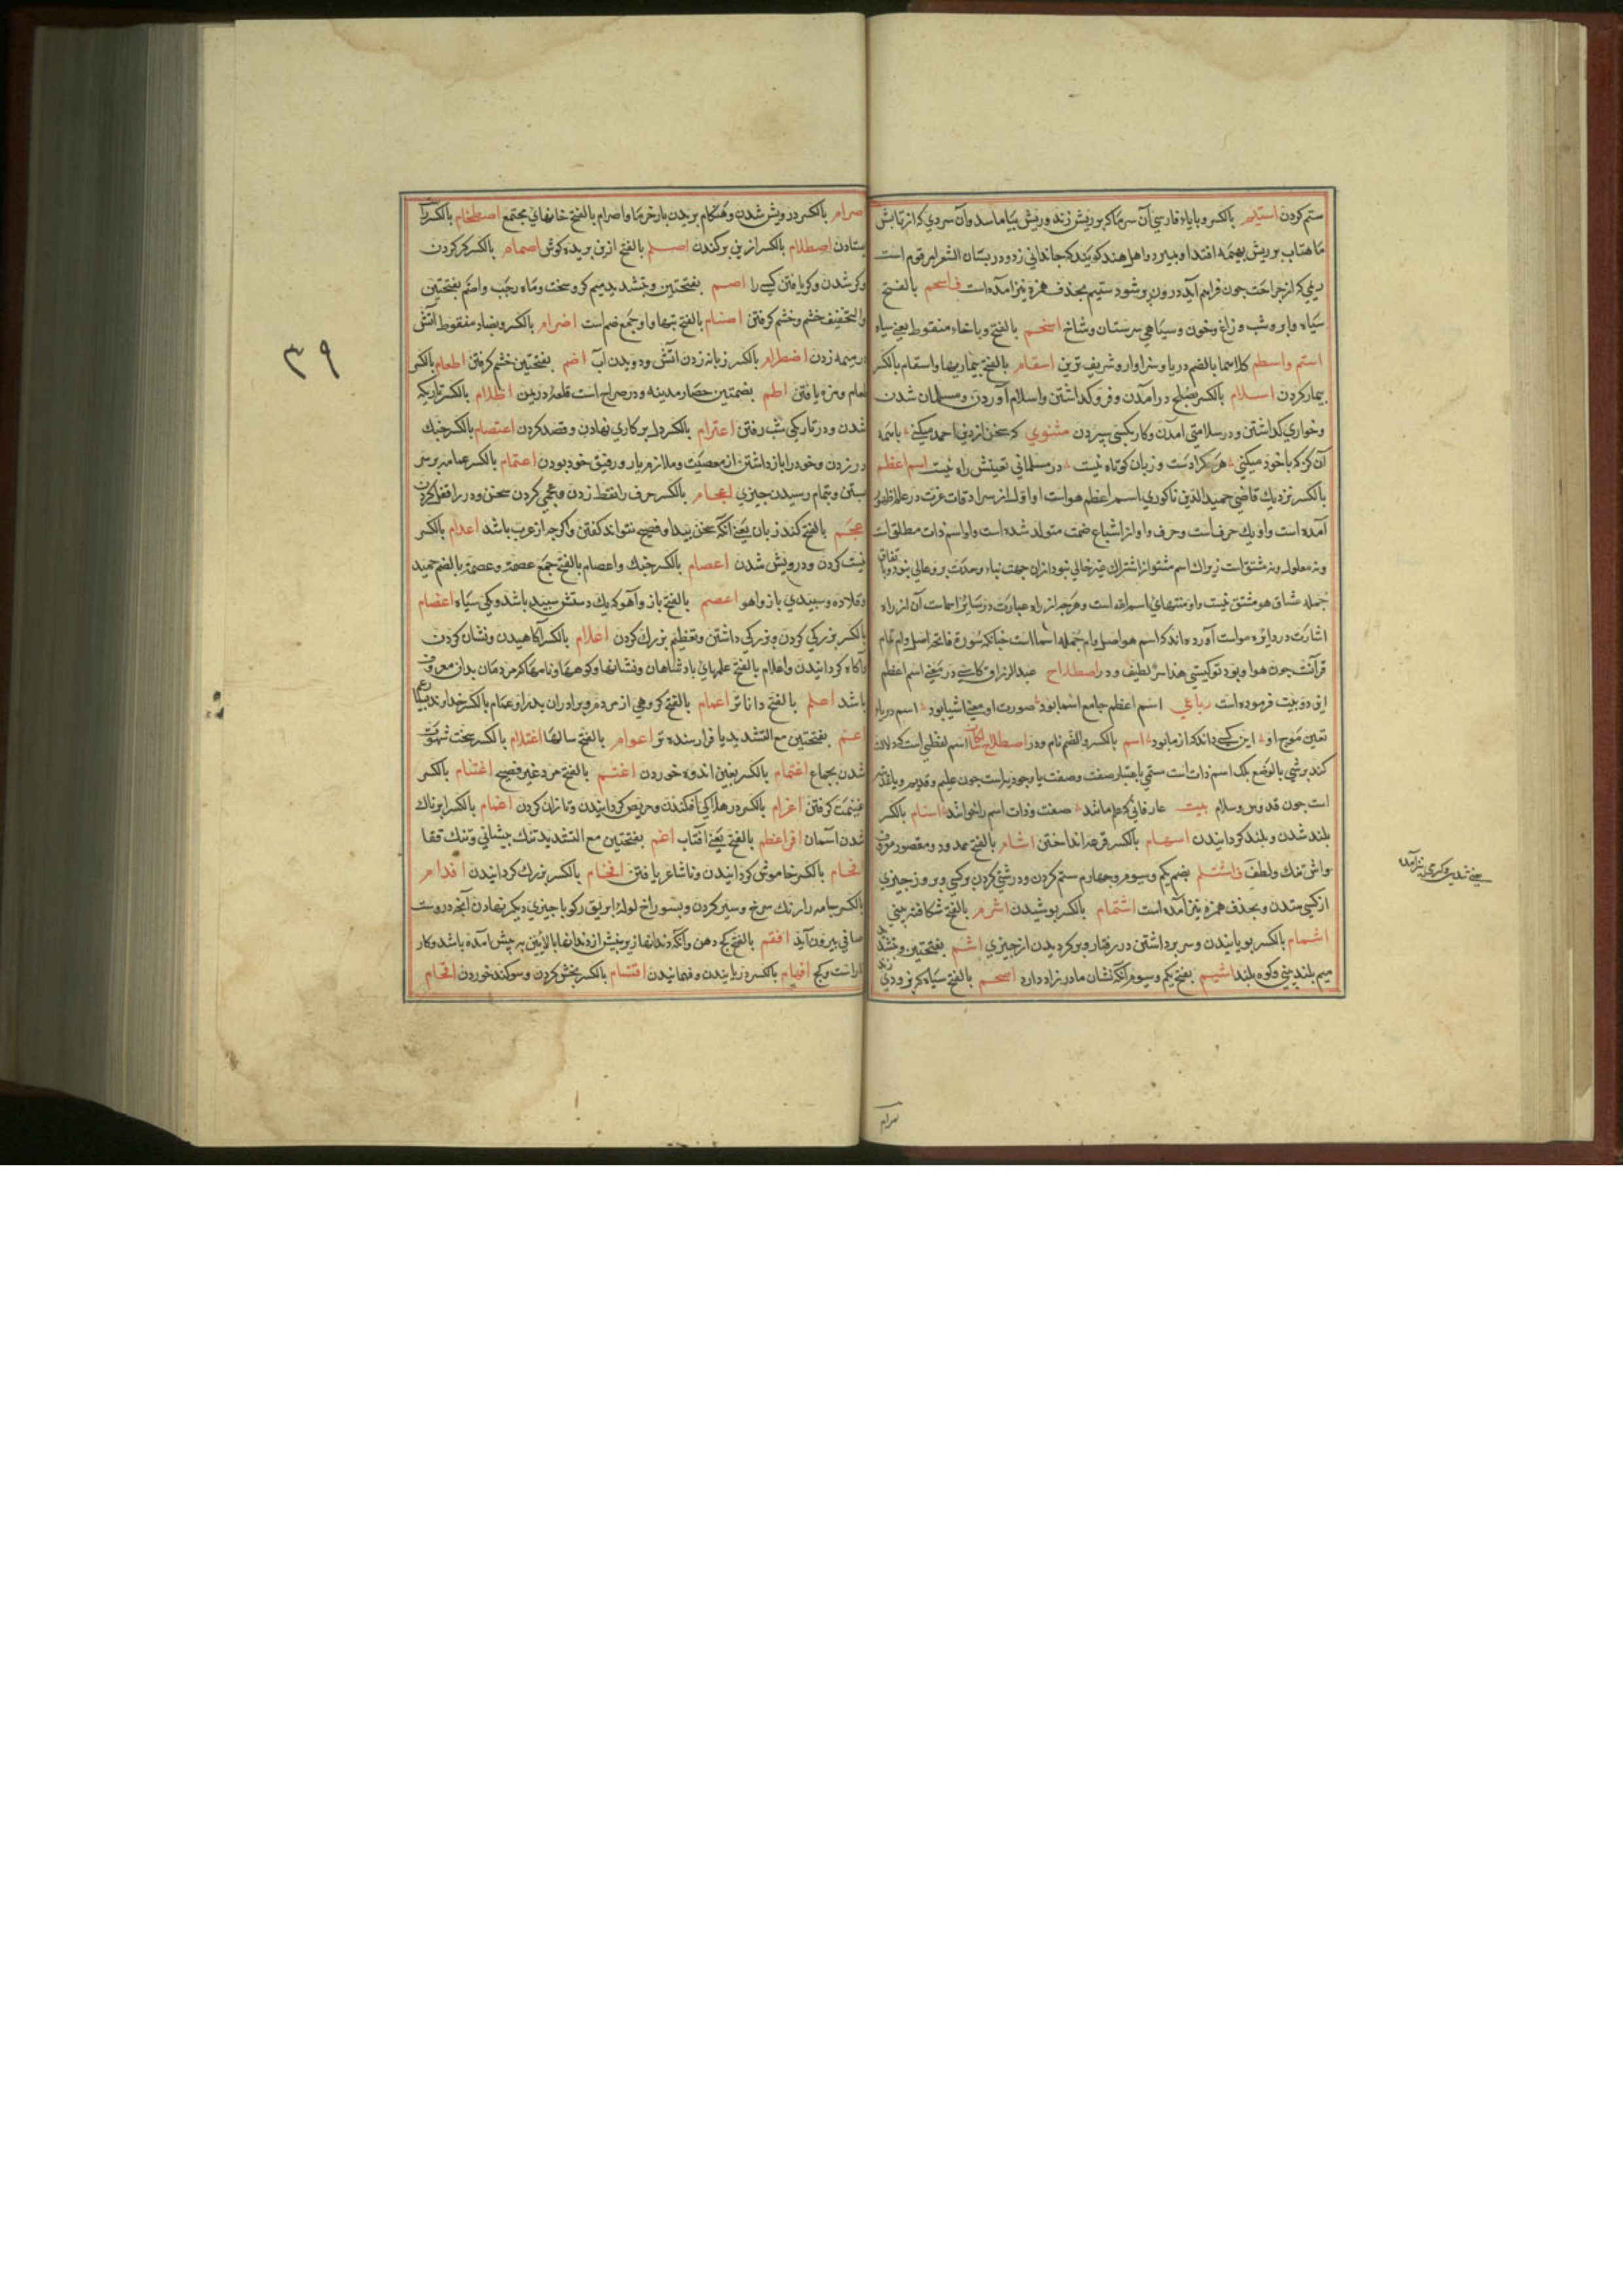 ستم کردن استیم بالکسر و بایاء فارسی آن سرما که بر ریش زند و ریش بیاماسد و آن سردی که از تابش
ماهتاب بر ریش بهیمه افتد او بمیرد و اهل هند کویند که جاندانی زد و در بستان الشعرا مرقوم است
ریمی که از جراحت چون فراهم آید درون پر شود ستیم بحذف همزه نیز آمده است فاسحم بالفتح
سیاه و ابر و شب و زاغ و خون و سیاهی سرپستان و شاخ اسخم بالفتح و باخاء منقوط یعنی سیاه
استم واسطم کلاهما بالضم دریا و سزاوار و شریف ترین اسقام بالفتح بیماریها و اسقام بالکسر
بیمار کردن اسلام بالکسر بصلح درآمدن و فروکذاشتن و اسلام آوردن و مسلمان شدن
و خواری کذاشتن و در سلامتی آمدن و کار بکسی سپردن مثنوی که سخن از دین احمد میکنی باسمه
آن کن که باخود میکنی هر کرا دست و زبان کوتاه نیست در مسلمانی تعینش راه نیست اسم اعظم
بالکسر نزدیک قاضی حمیدالدین ناکوری اسم اعظم هواست او اول از سرادقات عزت در عالم ظهور
آمده است و او یک حرف است و حرف واو از اشباع ضمت متولد شده است و او اسم ذات مطلق است
و نه معلول و نه مشتق است زیراک اسم مشتق از اشتراک غیر خالی نبود ازان جهت نباء وحدت بر وعالی نبود و باتفاق
جمله مشاق هو مشتق نیست و او منتهای اسم الله است و هرچه از راه عبارت در سایر اسماست آن از راه
اشارت در دایره هواست آورده اند که اسم هو اصل و ام جمله اسما است چنانکه سورة فاتحه اصل و ام تمام
قرآنست چون هوا و بود تو کیستی هذا سر لطیف و در اصطلاح عبدالرزاق کاشی در معنی اسم اعظم
این دو بیت فرموده است رباعی اسم اعظم جامع اسما بود صورت او معنی اشیا بود اسم دریا و
تعین موج او این کسی داند که از ما بود اسم بالکسر و الضم نام و در اصطلاح اسم لفظی است که دلالت
کند بر شی بالوضع بلک اسم ذات است مسمی باعتبار صفت و صفت یا وجودیه است چون علیم و قدیم و یا عدمیه
است چون قدوس و سلام بیت عارفانی که علم ما دانند صفت و ذات اسم را خوانند اسنام بالکسر
بلند شدن و بلند کردانیدن اسهام بالکسر قرعه انداختن اشام بالفتح ممدود و مقصور
و اش تنک و لطف فاشتلم بضم یکم و سیوم و چهارم ستم کردن و درشتی کردن بر کسی و بزور چیزی
از کسی ستدن و بحذف همزه نیز آمده است اشتمام بالکسر بوشیدن اشرم بالفتح شکافته بینی
اشمام بالکسر بویانیدن و سر برداشتن در رفتار و برکردیدن از چیزی اشم بفتحتین و تشدید
میم بلند بینی و کوه بلند اشیم بفتح یکم و سیوم آنکه نشان مادرزاد دارد اصحم بالفتح سیاه که بزردی زند
یعنی شدید و کری نیز آمده
صرام
اصرام بالکسر درویش شدن و هنکام بریدن بار خرما و اصرام بالفتح خانهای مجتمع اصطخام بالکسر راست
ایستادن اصطلام بالکسر از بن برکندن اصلم بالفتح ازبن بریده کوش اصمام بالکسر کر کردن
و کر شدن و کر یافتن کسی را اصم بفتحتین و تشدید میم کر و سخت و ماه رجب و اضم بفتحتین
و التخفیف خشم و خشم کرفتن اصنام بالفتح بتها و او جمع صنم است اضرام بالکسر و بضاد منقوط آتش
در هیمه زدن اضطرام بالکسر زبانه زدن آتش و دویدن اب اضم بفتحتین خشم کرفتن اطعام بالکسر
طعام و مزه یافتن اطم بضمتین حصار مدینه و در صراح است قلعه در یمن اظلام بالکسر تاریک
شدن و در تاریکی شب رفتن اعترام بالکسر دل بر کاری نهادن و قصد کردن اعتصام بالکسر چنک
در زدن و خود را باز داشتن از معصیت و ملازم یار و رفیق خود بودن اعتمام بالکسر عمامه بر سر
بستن و تمام رسیدن چیزی اعجام بالکسر حرف را نقط زدن و عجمی کردن سخن و در را قفل کردن
عجم بالفتح کند زبان یعنی آنکه سخن پیدا و فصیح نتواند کفتن و اکرچه از عرب باشد اعدام بالکسر
نیست کردن و درویش شدن اعصام بالکسر چنک و اعصام بالفتح جمع عصمة و عصمة بالضم حمید
و قلاده و سپیدی بازو آهو اعصم بالفتح باز و آهو که یک دستش سپید باشد و یکی سیاه اعضام
بالکسر بزرکی کردن و بزرکی داشتن و تعظیم بزرک کردن اعلام بالکسر آکاهیدن و نشان کردن
و آکاه کردانیدن و اعلام بالفتح علمهای بادشاهان و نشانها و کوهها و نامها که مردمان بدان معروف
باشد اعلم بالفتح داناتر اعمام بالفتح کروهی از مردم و برادران پدر و اعمام بالکسر خداوند بسیار عم
اعم بفتحتین مع التشدید یا فرارسنده تر اعوام بالفتح سالها اغتلام بالکسر سخت شهوت
شدن بجماع اغتمام بالکسر بغین اندوه خوردن اغتم بالفتح مرد غیر فصیح اغتنام بالکسر
غنیمت کرفتن اغرام بالکسر در هلاکی افکندن و حریص کردانیدن و تاوان کردن اغمام بالکسر ابرناک
شدن آسمان افراعظم بالفتح یعنی آفتاب اغم بفتحتین مع التشدید تنک پیشانی و تنک قفا
افحام بالکسر خاموش کردانیدن و ناشاعر یافتن افخام بالکسر بزرک کردانیدن افدام
بالکسر جامه را رنک سرخ و سیر کردن و بسوراخ لوله ابریق رکو یا چیزی دیکر نهادن آنچه دروست
صافی بیرون آید افقم بالفتح کج دهن و آنکه دندانها زیر پیش از دندانها بالایین پیش آمده باشد و کار
ناراست و کج افهام بالکسر دریابندن و فهمانیدن اقتسام بالکسر بخش کردن و سوکند خوردن اقتحام
۳۹